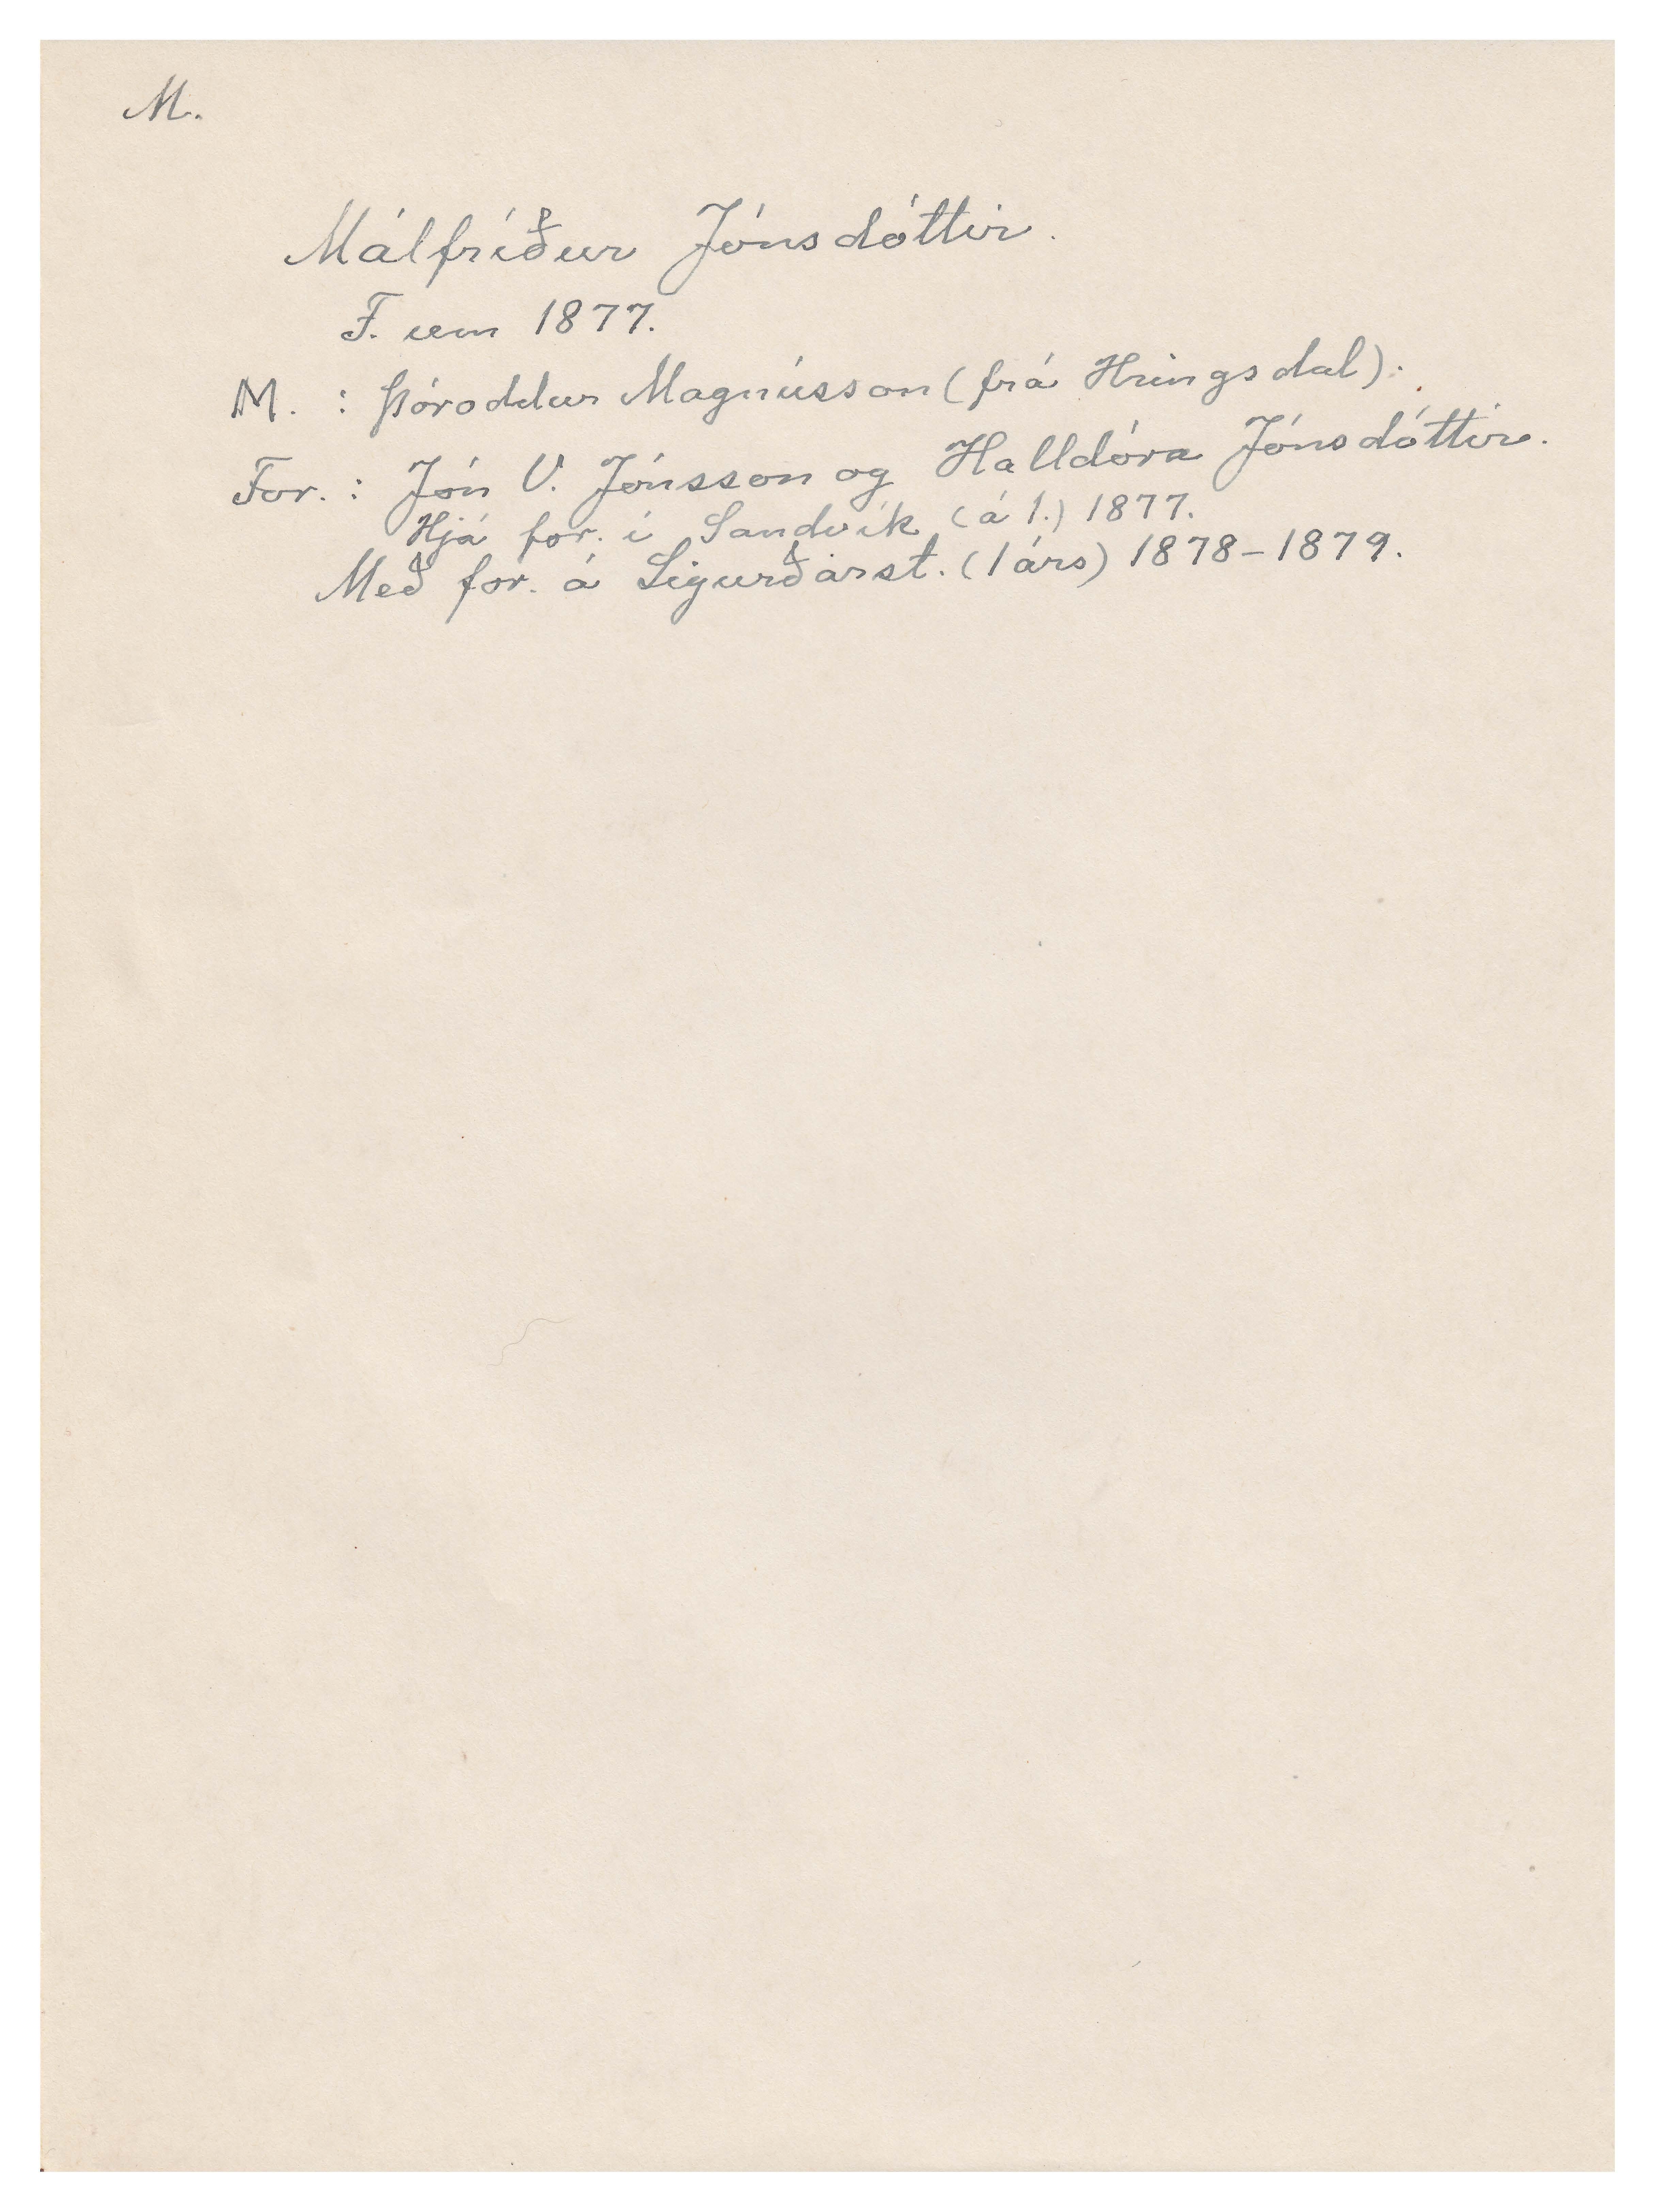 M.
Málfríður Jónsdóttir.
F. um 1877.
M. : Þóroddur Magnússon (frá Hringsdal).
For. : Jón V. Jónsson og Halldóra Jónsdóttir.
Hjá for. í Sandvík (á 1.) 1877.
Með for. á Sigurðarst. (1 árs) 1878-1879.